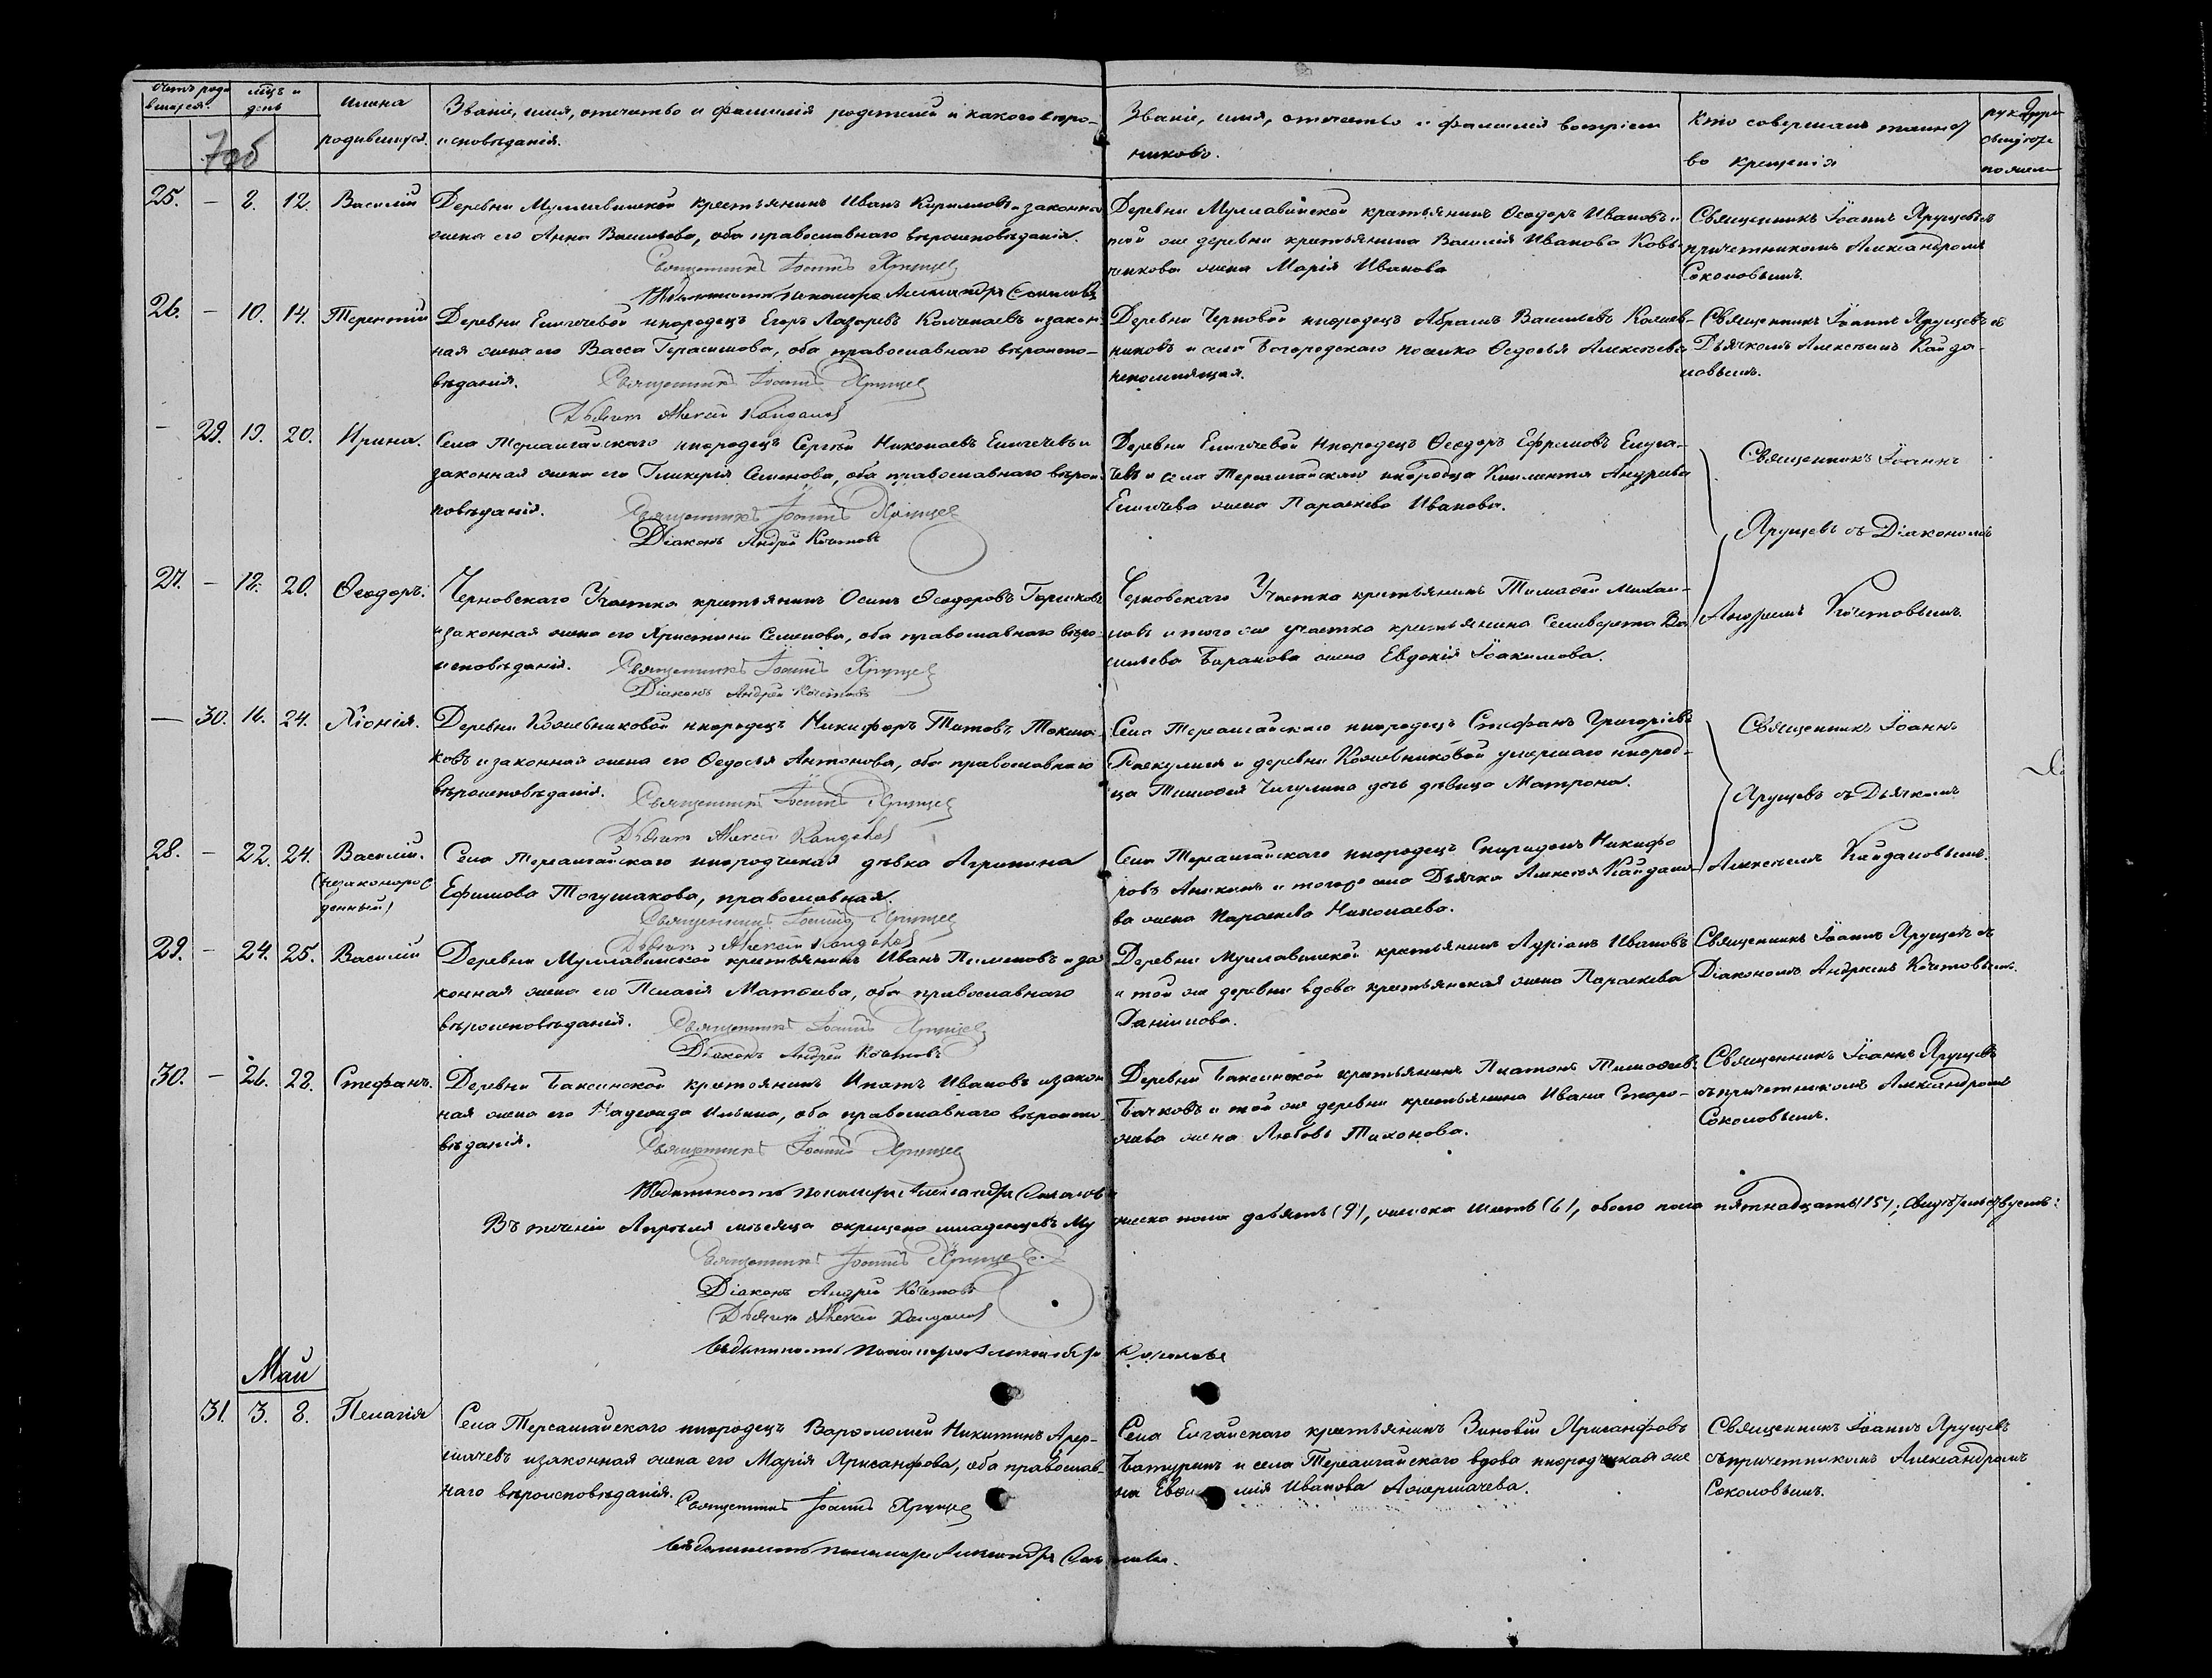 Счетъ роди
вшихся.
мѣцъ и
день
имена
родившихся.
Званіе, имя, отчество и фамилія родителей и какого вѣро-
исповѣданія.
Званіе, имя, отчество и фамилія воспріем
никовъ.
Кто совершалъ таинст
во крещенія
7об
25. — 8. 12. Василій
Деревни Муллавинской крестьянинъ Иванъ Кириловъ и законная
жена его Анна Васильева, оба православнаго вѣроисповѣданія.
Священникъ Іоаннъ Ярущевъ
Пономаръ Александръ Соколовъ
Деревни Муллавинской крестьянинъ Ѳеодоръ Ивановъ и
той же деревни крестьянина Василія Иванова
жена Марія Иванова
Священникъ Іоаннъ Ярущевъ съ
причетникомъ Александромъ
Соколовымъ.
26. — 10. 14. Терентій
Деревни Ешегечевой инородецъ Егоръ Лазаревъ и закон-
ная жена его Васса Герасимова, оба православнаго вѣроиспо-
вѣданія. Священникъ Іоаннъ Ярущевъ
Дьячекъ Алексѣй Кайдаловъ
Деревни Черновой инородецъ Абрамъ Васильевъ Кожев-
никовъ и села Богородскаго Ѳедосья Алексѣева
Священникъ Іоаннъ Ярущевъ съ
Дьячкомъ Алексѣемъ Кайда-
ловымъ.
— 29. 19. 20. Ирина.
Села Терсалгайскаго инородецъ Сергѣй Николаевъ и
законная жена его Гликерія Семенова, оба православнаго вѣроис
повѣданія. Священникъ Іоаннъ Ярущевъ
Діаконъ Андрей Кочетовъ
Деревни инородецъ Ѳеодоръ Ефремовъ
и села Терсалгайскаго инородца Климентія Андреева
жена Параскева Иванова.
Священникъ Іоаннъ
Ярущевъ съ Діакономъ
Андреемъ Кочетовымъ.
27. — 18. 20. Ѳеодоръ.
Черновскаго Участка крестьянинъ Осипъ Ѳеодоровъ Горшковъ
и законная жена его Христина Семенова, оба православнаго вѣро-
исповѣданія. Священникъ Іоаннъ Ярущевъ
Діаконъ Андрей Кочетовъ
Черновскаго Участка крестьянинъ Тимоѳей Михай-
ловъ и того же участка крестьянина Селиверста Ва
сильева Баранова жена Евдокія Іоакимова.
— 30. 16. 24. Хіонія.
Деревни Кожевниковой инородецъ Никифоръ Титовъ Токма-
ковъ и законная жена его Ѳедосья Антонова, оба православнаго
вѣроисповѣданія. Священникъ Іоаннъ Ярущевъ
Дьячекъ Алексѣй Кайдаловъ
Села Терсалгайскаго инородецъ Стефанъ Григорьевъ
и деревни Кожевниковой умершаго инород-
ца Тимоѳея Чигулина дочь дѣвица Матрона.
Священникъ Іоаннъ
Ярущевъ съ Дьячкомъ
Алексѣемъ Кайдаловымъ.
28. — 22. 24. Василій.
(незаконорож
денный)
Села Терсалгайскаго инородческая дѣвка Агрипина
Ефимова Тогушакова, православная.
Священникъ Іоаннъ Ярущевъ
Дьячекъ Алексѣй Кайдаловъ
Села Терсалгайскаго инородецъ Спиридонъ Никифо
ровъ Аникинъ и того же села Дьячка Алексѣя Кайдало
ва жена Параскева Николаева.
29. — 24. 25. Василій
Деревни Муллавинской крестьянинъ Иванъ Пименовъ и за
конная жена его Пелагія Матвѣева, оба православнаго
вѣроисповѣданія. Священникъ Іоаннъ Ярущевъ
Діаконъ Андрей Кочетовъ
Деревни Муллавинской крестьянинъ Ларіонъ Ивановъ
и той же деревни вдова крестьянская жена Параскева
Даніилова.
Священникъ Іоаннъ Ярущевъ съ
Діакономъ Андреемъ Кочетовымъ.
30. — 26. 28. Стефанъ.
Деревни Баксинской крестьянинъ Ипатъ Ивановъ и закон
ная жена его Надежда Ильина, оба православнаго вѣроиспо
вѣданія. Священникъ Іоаннъ Ярущевъ
Пономаръ Александръ Соколовъ
Деревни Баксинской крестьянинъ Платонъ Тимоѳеевъ
Бачковъ и той же деревни крестьянина Ивана Старо-
жена Любовь Тихонова.
Священникъ Іоаннъ Ярущевъ
съ причетникомъ Александромъ
Соколовымъ.
Въ теченіи Апрѣля мѣсяца окрещено младенцевъ му
жеска пола девять (9), женска шесть (6), обоего пола пятнадцать (15), свидѣтельствуемъ:
Священникъ Іоаннъ Ярущевъ
Діаконъ Андрей Кочетовъ
Дьячекъ Алексѣй Кайдаловъ
Пономаръ Александръ Соколовъ
Май
31. 3. 8. Пелагія
Села Терсалгайскаго инородецъ Варѳоломей Никитинъ
и законная жена его Марія Хрисанфова, оба православ-
наго вѣроисповѣданія. Священникъ Іоаннъ Ярущевъ
Пономаръ Александръ Соколовъ.
Села Елгайскаго крестьянинъ Зиновій Хрисанфовъ
Батуринъ и села Терсалгайскаго вдова инородческая же
на Иванова
Священникъ Іоаннъ Ярущевъ
съ причетникомъ Александромъ
Соколовымъ.